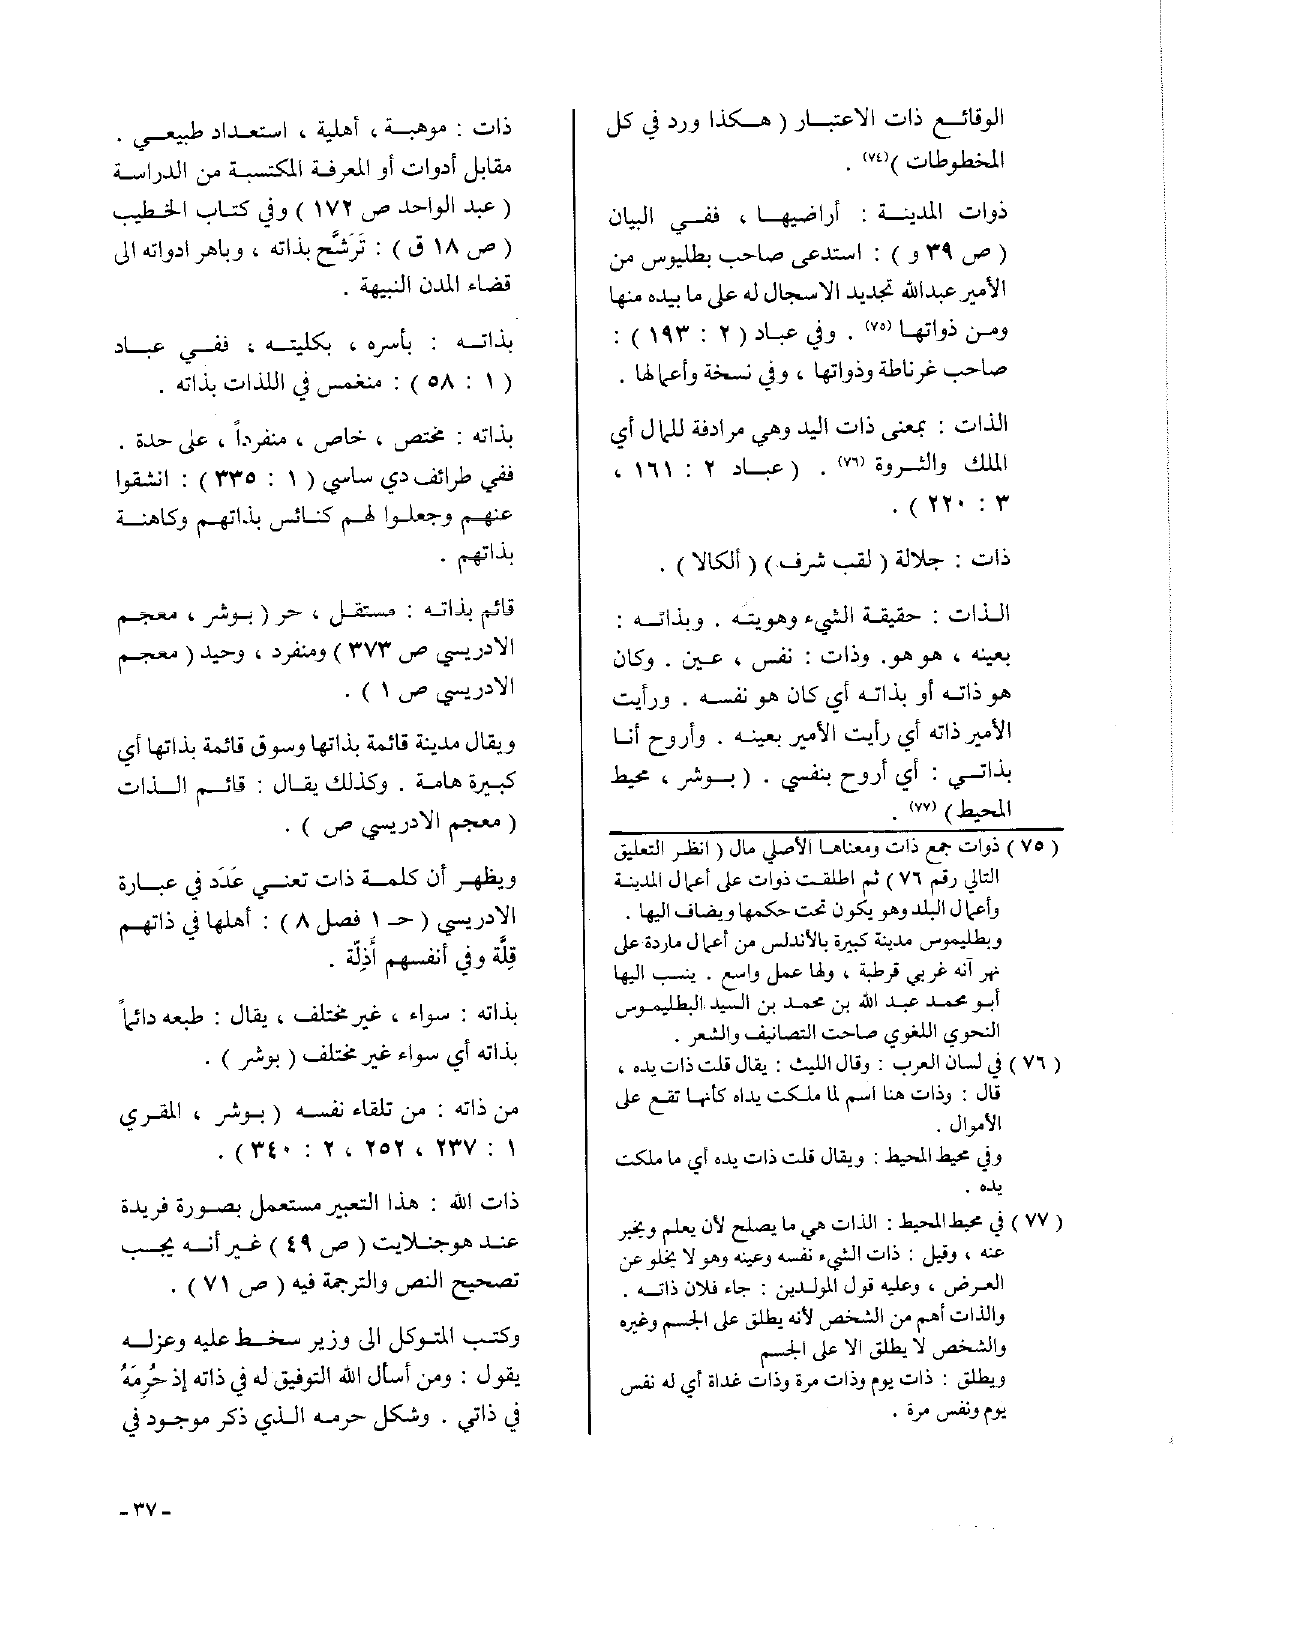 الوقائع ذات الاعتبار ( هكذا ورد في كل
المخطوطات )(٧٤) .
ذوات المدينة : أراضيها ، ففي البيان
( ص ٣٩ و ) : استدعى صاحب بطليوس من
الأمير عبدالله تجديد الاسجال له على ما بيده منها
ومن ذواتها (٧٥) . وفي عباد ( ٢ : ١٩٣ ) :
صاحب غرناطة وذواتها ، وفي نسخة وأعمالها .
الذات : بمعنى ذات اليد وهي مرادفة للمال أي
الملك والثروة (٧٦) . ( عباد ٢ : ١٦١ ،
٣ : ٢٢٠ ) .
ذات : جلالة ( لقب شرف ) ( ألكالا ) .
الذات : حقيقة الشيء وهويته . وبذاته :
بعينه ، هو هو. وذات : نفس ، عين . وكان
هو ذاته أو بذاته أي كان هو نفسه . ورأيت
الأمير ذاته أي رأيت الأمير بعينه . وأروح أنا
بذاتي : أي أروح بنفسي . ( بوشر ، محيط
المحيط ) (٧٧) .
( ٧٥ ) ذوات جمع ذات ومعناها الأصلي مال ( انظر التعليق
التالي رقم ٧٦ ) ثم اطلقت ذوات على أعمال المدينة
وأعمال البلد وهو يكون تحت حكمها ويضاف اليها .
وبطليموس مدينة كبيرة بالأندلس من أعمال ماردة على
نهر آنه غربي قرطبة ، ولها عمل واسع . ينسب اليها
أبو محمد عبد الله بن محمد بن السيد البطليموس
النحوي اللغوي صاحت التصانيف والشعر .
( ٧٦ ) في لسان العرب : وقال الليث : يقال قلت ذات يده ،
قال : وذات هنا اسم لما ملكت يداه كأنها تقع على
الأموال .
وفي محيط المحيط : ويقال قلت ذات يده أي ما ملكت
يده .
( ٧٧ ) في محيط المحيط : الذات هي ما يصلح لأن يعلم ويخبر
عنه ، وقيل : ذات الشيء نفسه وعينه وهو لا يخلو عن
العرض ، وعليه قول المولدين : جاء فلان ذاته .
والذات أهم من الشخص لأنه يطلق على الجسم وغيره
والشخص لا يطلق الا على الجسم
ويطلق : ذات يوم وذات مرة وذات غداة أي له نفس
يوم ونفس مرة .
ذات : موهبة ، أهلية ، استعداد طبيعي .
مقابل أدوات أو المعرفة المكتسبة من الدراسة
( عبد الواحد ص ١٧٢ ) وفي كتاب الخطيب
( ص ١٨ ق ) : تَرَشَّح بذاته ، وباهر ادواته الى
قضاء المدن النبيهة .
بذاته : بأسره ، بكليته ، ففي عباد
( ١ : ٥٨ ) : منغمس في اللذات بذاته .
بذاته : مختص ، خاص ، منفرداً ، على حدة .
ففي طرائف دي ساسي ( ١ : ٣٣٥ ) : انشقوا
عنهم وجعلوا لهم كنائس بذاتهم وكاهنة
بذاتهم .
قائم بذاته : مستقل ، حر ( بوشر ، معجم
الادريسي ص ٣٧٣ ) ومنفرد ، وحيد ( معجم
الادريسي ص ١ ) .
ويقال مدينة قائمة بذاتها وسوق قائمة بذاتها أي
كبيرة هامة . وكذلك يقال : قائم الذات
( معجم الادريسي ص ) .
ويظهر أن كلمة ذات تعني عَدَد في عبارة
الادريسي ( جـ ١ فصل ٨ ) : أهلها في ذاتهم
قِلَّة وفي أنفسهم أَذِلّة .
بذاته : سواء ، غير مختلف ، يقال : طبعه دائماً
بذاته أي سواء غير مختلف ( بوشر ) .
من ذاته : من تلقاء نفسه ( بوشر ، المقري
١ : ٢٣٧ ، ٢٥٢ ، ٢ : ٣٤٠ ) .
ذات الله : هذا التعبير مستعمل بصورة فريدة
عند هوجنلايت ( ص ٤٩ ) غير أنه يجب
تصحيح النص والترجمة فيه ( ص ٧١ ) .
وكتب المتوكل الى وزير سخط عليه وعزله
يقول : ومن أسأل الله التوفيق له في ذاته إذ حُرِمَهُ
في ذاتي . وشكل حرمه الذي ذكر موجود في
- ٣٧ -